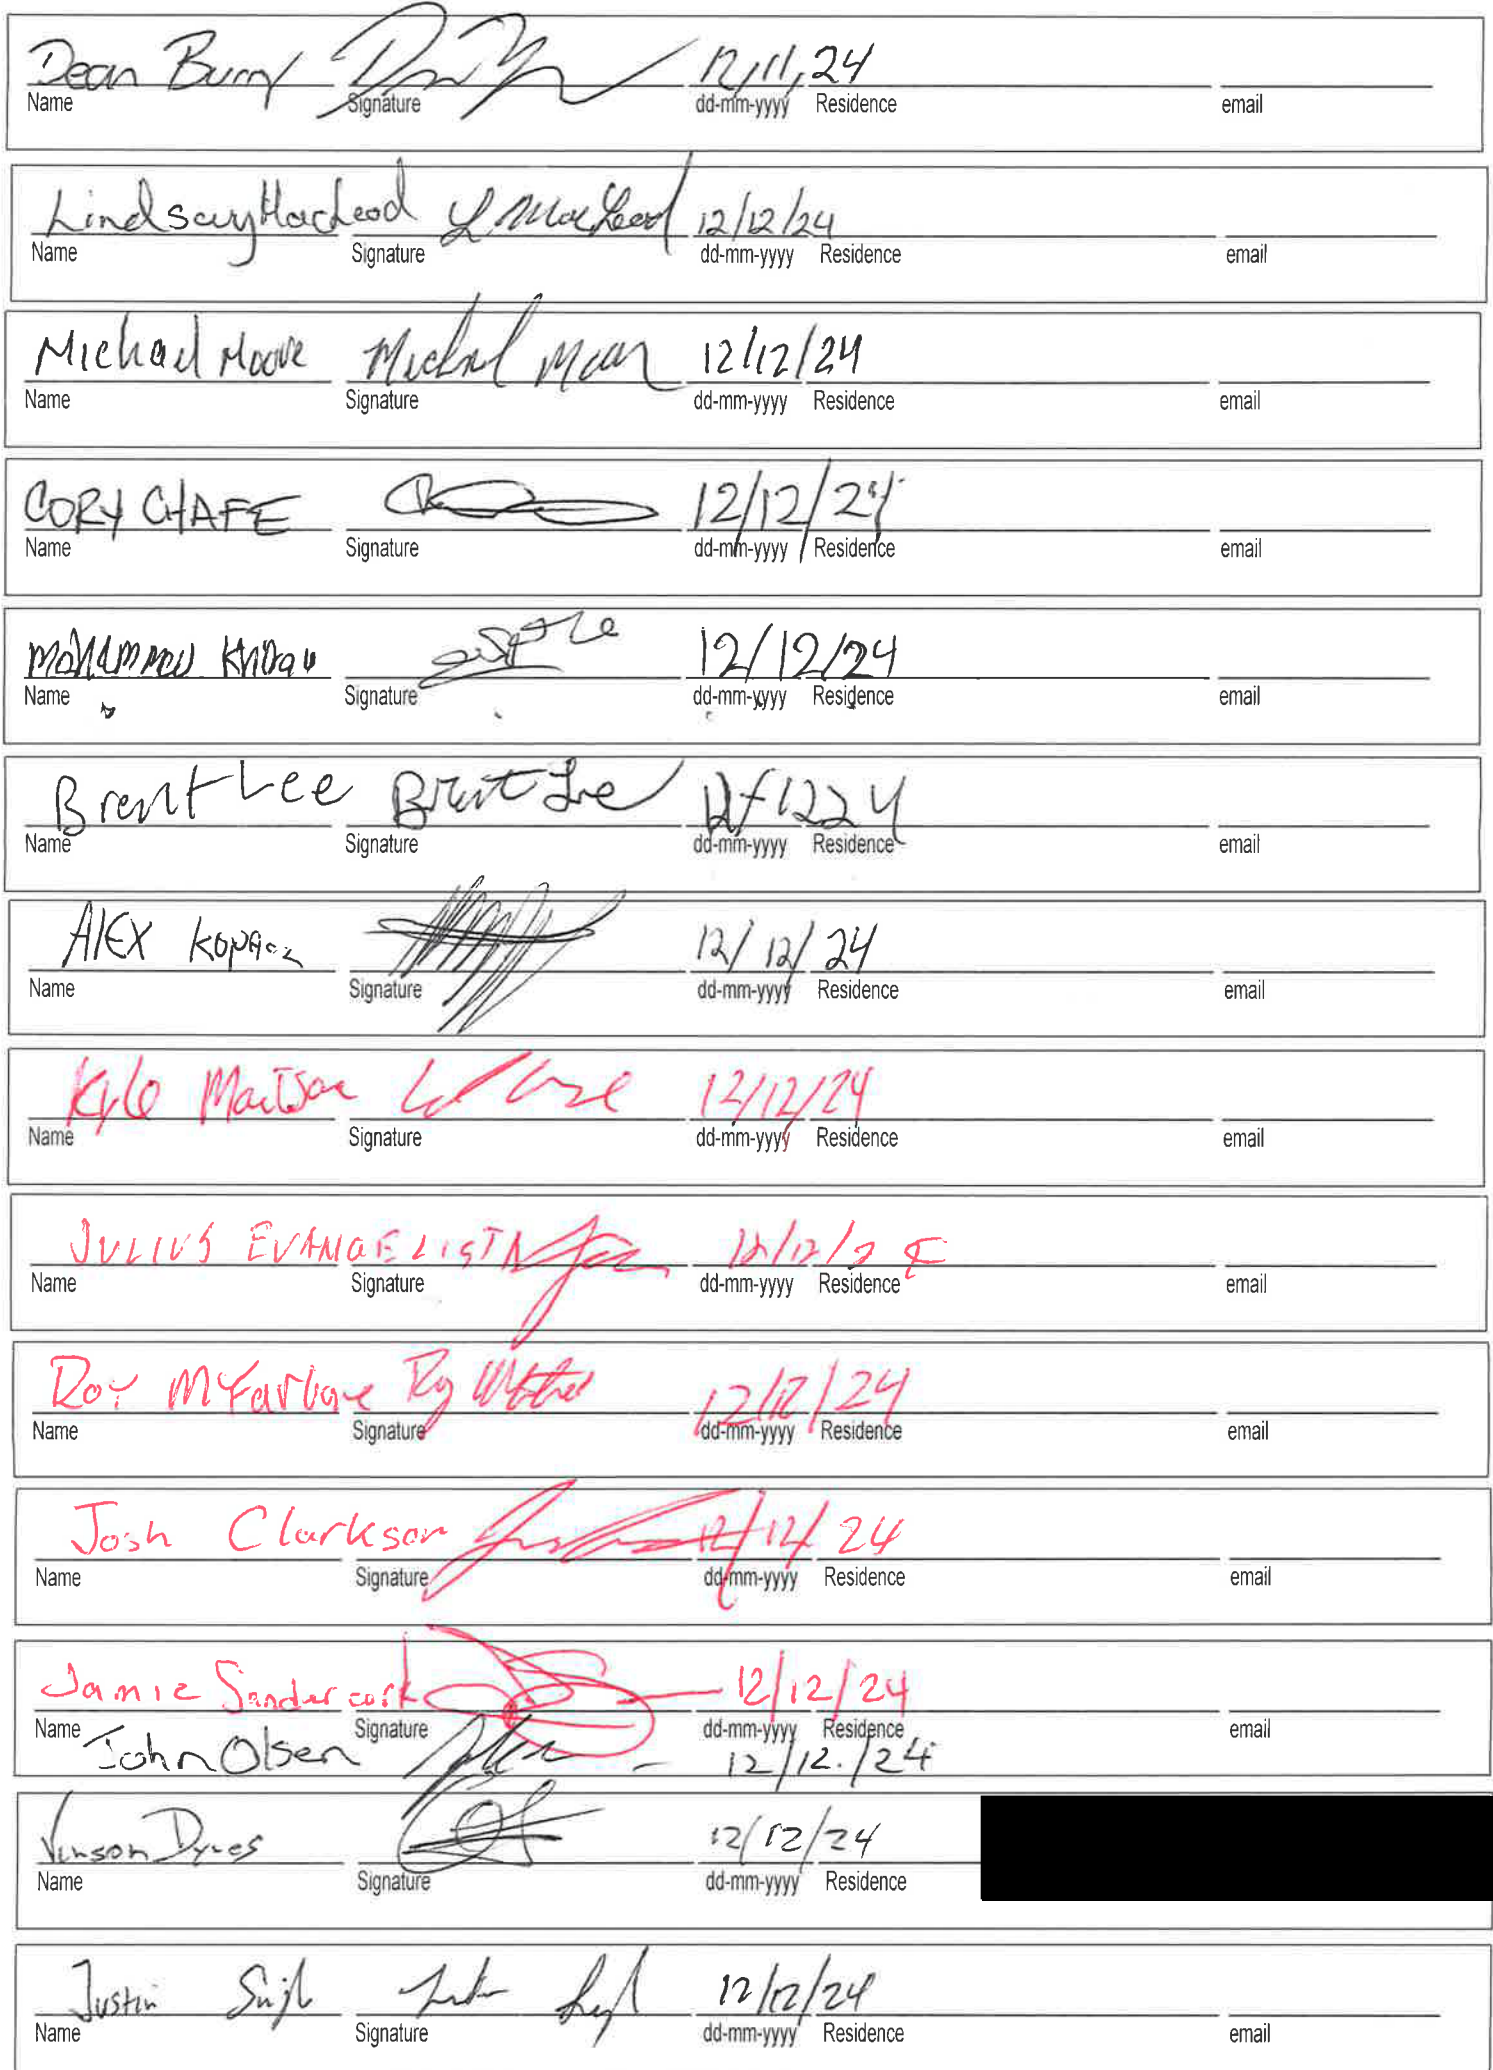 Dean Burry 12,11,24
Name Signature dd-mm-yyyy Residence email
Lindsay MacLeod L MacLeod 12/12/24
Name Signature dd-mm-yyyy Residence email
Michael Moore Michael Moore 12/12/24
Name Signature dd-mm-yyyy Residence email
CORY CHAFE 12/12/24
Name Signature dd-mm-yyyy Residence email
Mohammed 12/12/24
Name Signature dd-mm-yyyy Residence email
Brent Lee Brent Lee 12/1224
Name Signature dd-mm-yyyy Residence email
Alex Kopacz 12/12/24
Name Signature dd-mm-yyyy Residence email
Kyle 12/12/24
Name Signature dd-mm-yyyy Residence email
JULIUS EVANGELISTA 12/12/24
Name Signature dd-mm-yyyy Residence email
Roy McFarlane Roy 12/12/24
Name Signature dd-mm-yyyy Residence email
Josh Clarkson 12/12/24
Name Signature dd-mm-yyyy Residence email
Jamie Sandercock 12/12/24
Name Signature dd-mm-yyyy Residence email
John Olsen 12/12./24
Vinson Dynes 12/12/24
Name Signature dd-mm-yyyy Residence email
Justin 12/12/24
Name Signature dd-mm-yyyy Residence email